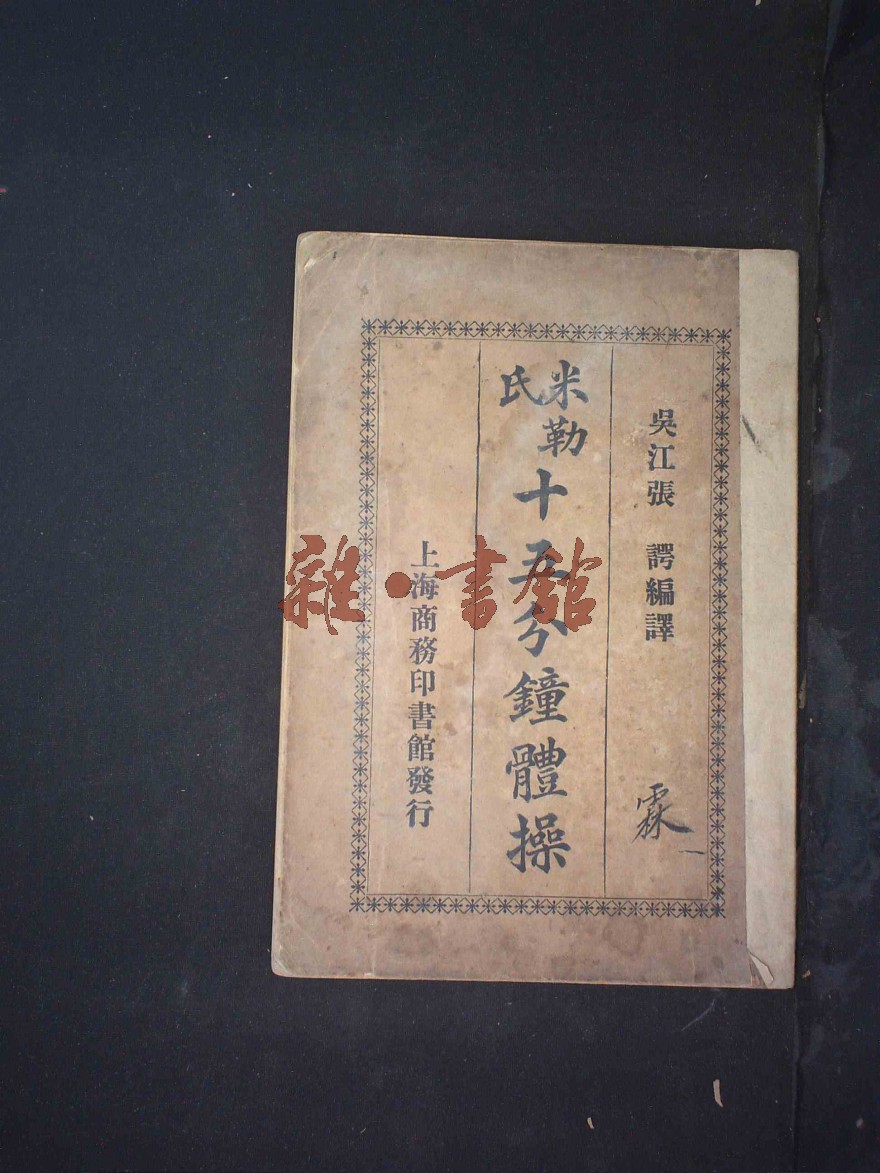 吳江張 諤編譯
米勒氏十五分鐘體操
上海商務印書館發行
霖
雜·書館